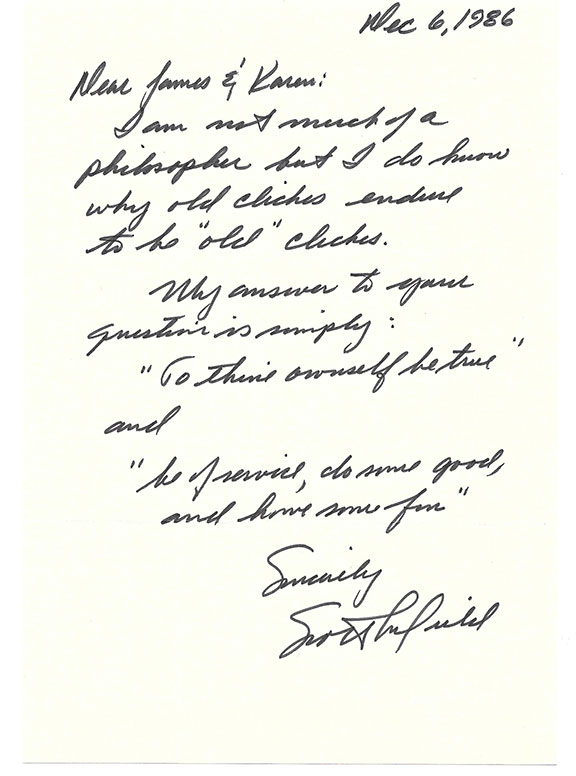 Dec 6, 1986
Dear James & Karen:
I am not much of a
philosopher but I do know
why old cliches endure
to be "old" cliches.
My answer to your
question is simply:
"To thine ownself be true"
and
"be of service, do some good,
and have some fun"
Sincerely
Scott